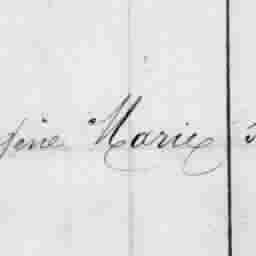 fine Marie